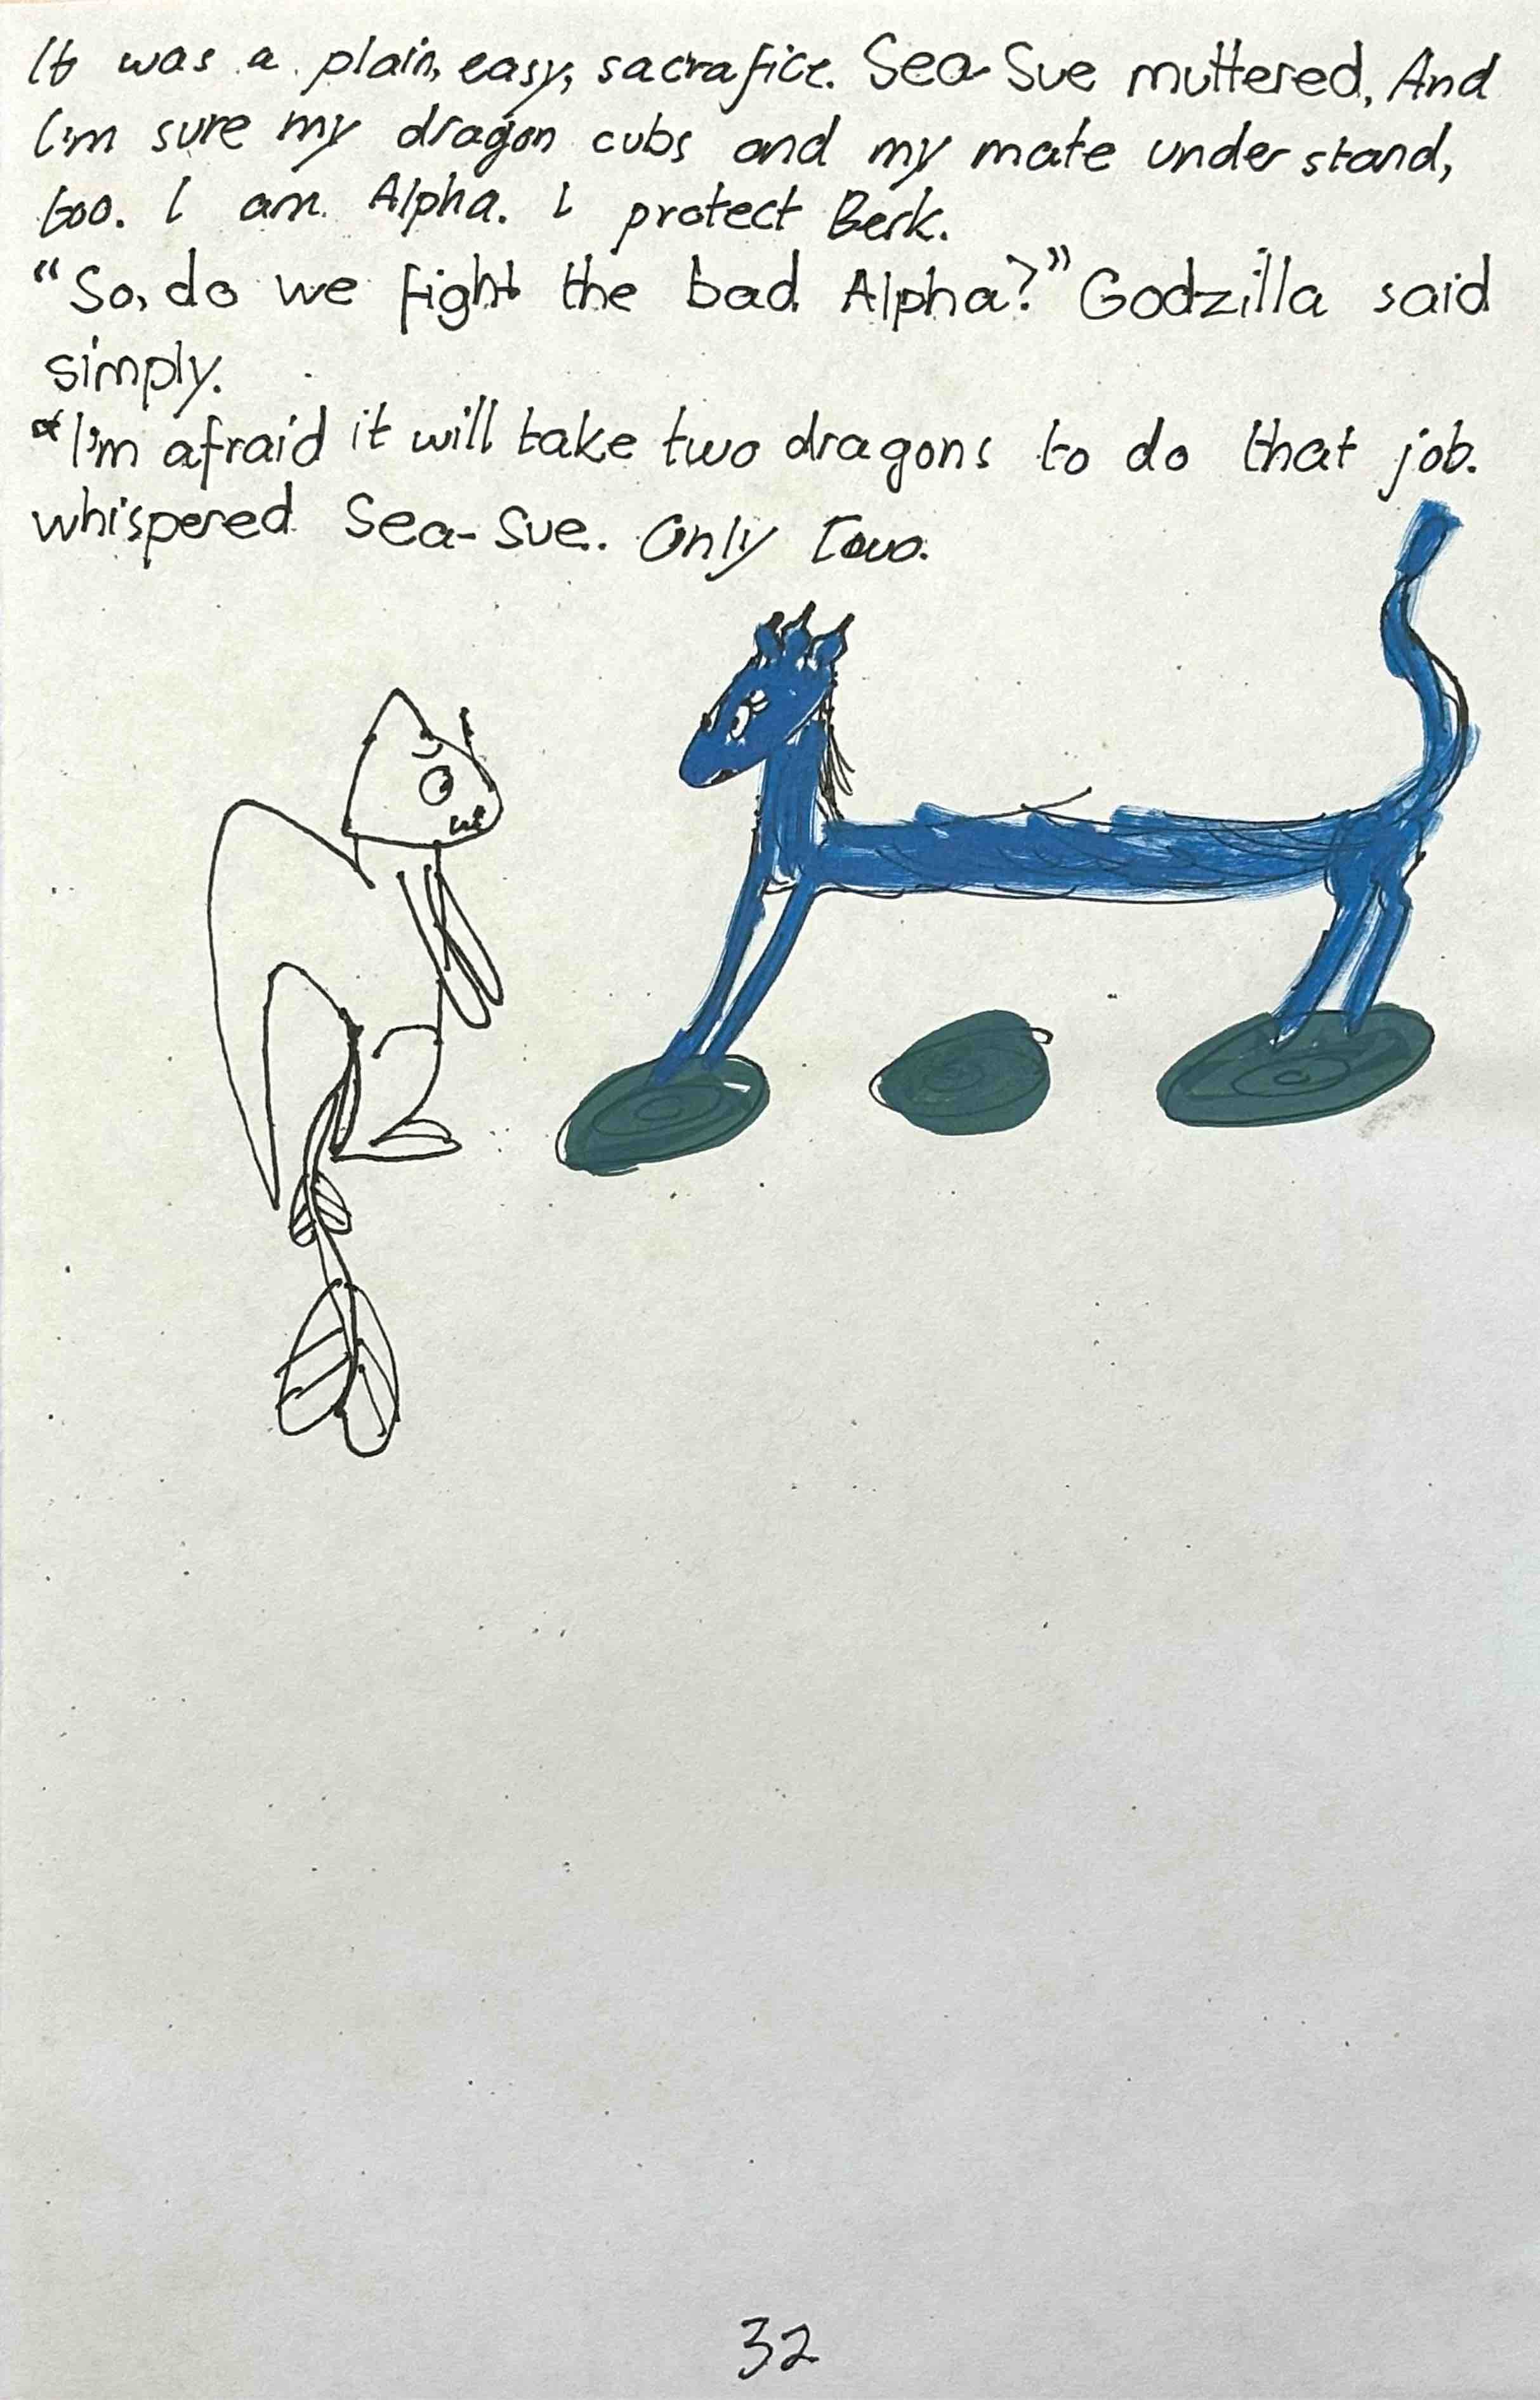 It was a plain, easy, sacrafice. Sea-Sue muttered, And
I'm sure my dragon cubs and my mate under stand,
too. I am Alpha. I protect Berk.
“So, do we fight the bad Alpha?” Godzilla said
simply.
“I'm afraid it will take two dragons to do that job.
whispered Sea-Sue. Only Two.
32